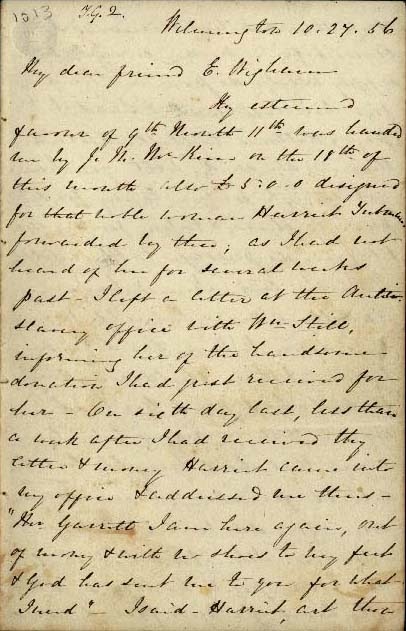 1013
T.G.2.
Wilmington 10.27.56
My dear friend E. Wigham
Thy esteemed
favour of 9th Month 11th was handed
me by J. M. McKim on the 18th of
this month also £5:0.0 designed
for that noble woman Harriet Tubman
forwarded by thee; as I had not
heard of her for several weeks
past - I left a letter at the Anti-
slavery office with Wm Still,
informing her of the handsome
donation I had just received for
her - On sixth day last, less than
a week after I had received thy
letter & money Harriet came into
my office & addressed me thus -
"Mr Garrett I am here again, out
of money & with no shoes to my feet
& God has sent me to you for what
I need" - I said - Harriet, art thou